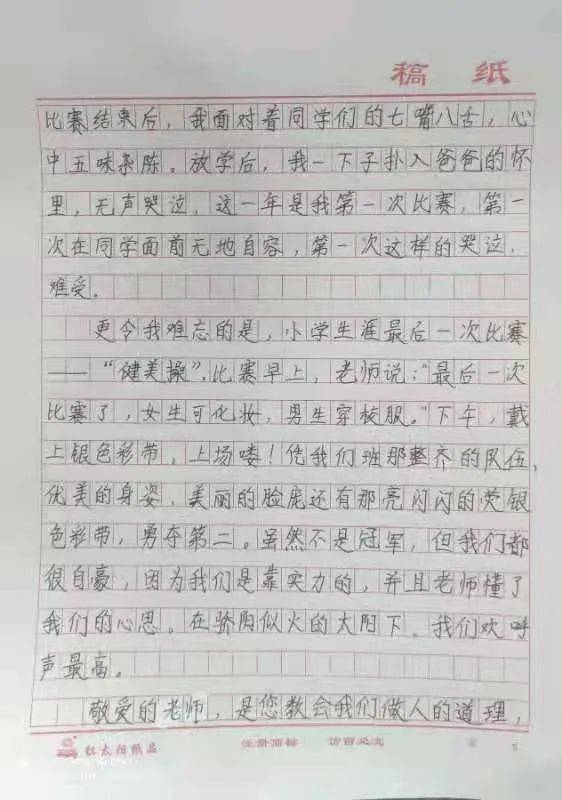 稿 纸
比赛结束后，我面对着同学们的七嘴八舌，心
中五味杂陈。放学后，我一下子扑入爸爸的怀
里，无声哭泣，这一年是我第一次比赛，第一
次在同学面前无地自容，第一次这样的哭泣，
难受。
更令我难忘的是，小学生涯最后一次比赛
——“健美操”，比赛早上，老师说：“最后一次
比赛了，女生可化妆，男生穿校服。”下午，戴
上银色彩带，上场喽！凭我们班那整齐的队伍，
优美的身姿，美丽的脸庞还有那亮闪闪的荧银
色彩带，勇夺第二。虽然不是冠军，但我们都
很自豪，因为我们是靠实力的，并且老师懂了
我们的心思。在骄阳似火的太阳下，我们欢呼
声最高。
敬爱的老师，是您教会我们做人的道理，
红太阳纸品 注册商标 仿冒必究 5